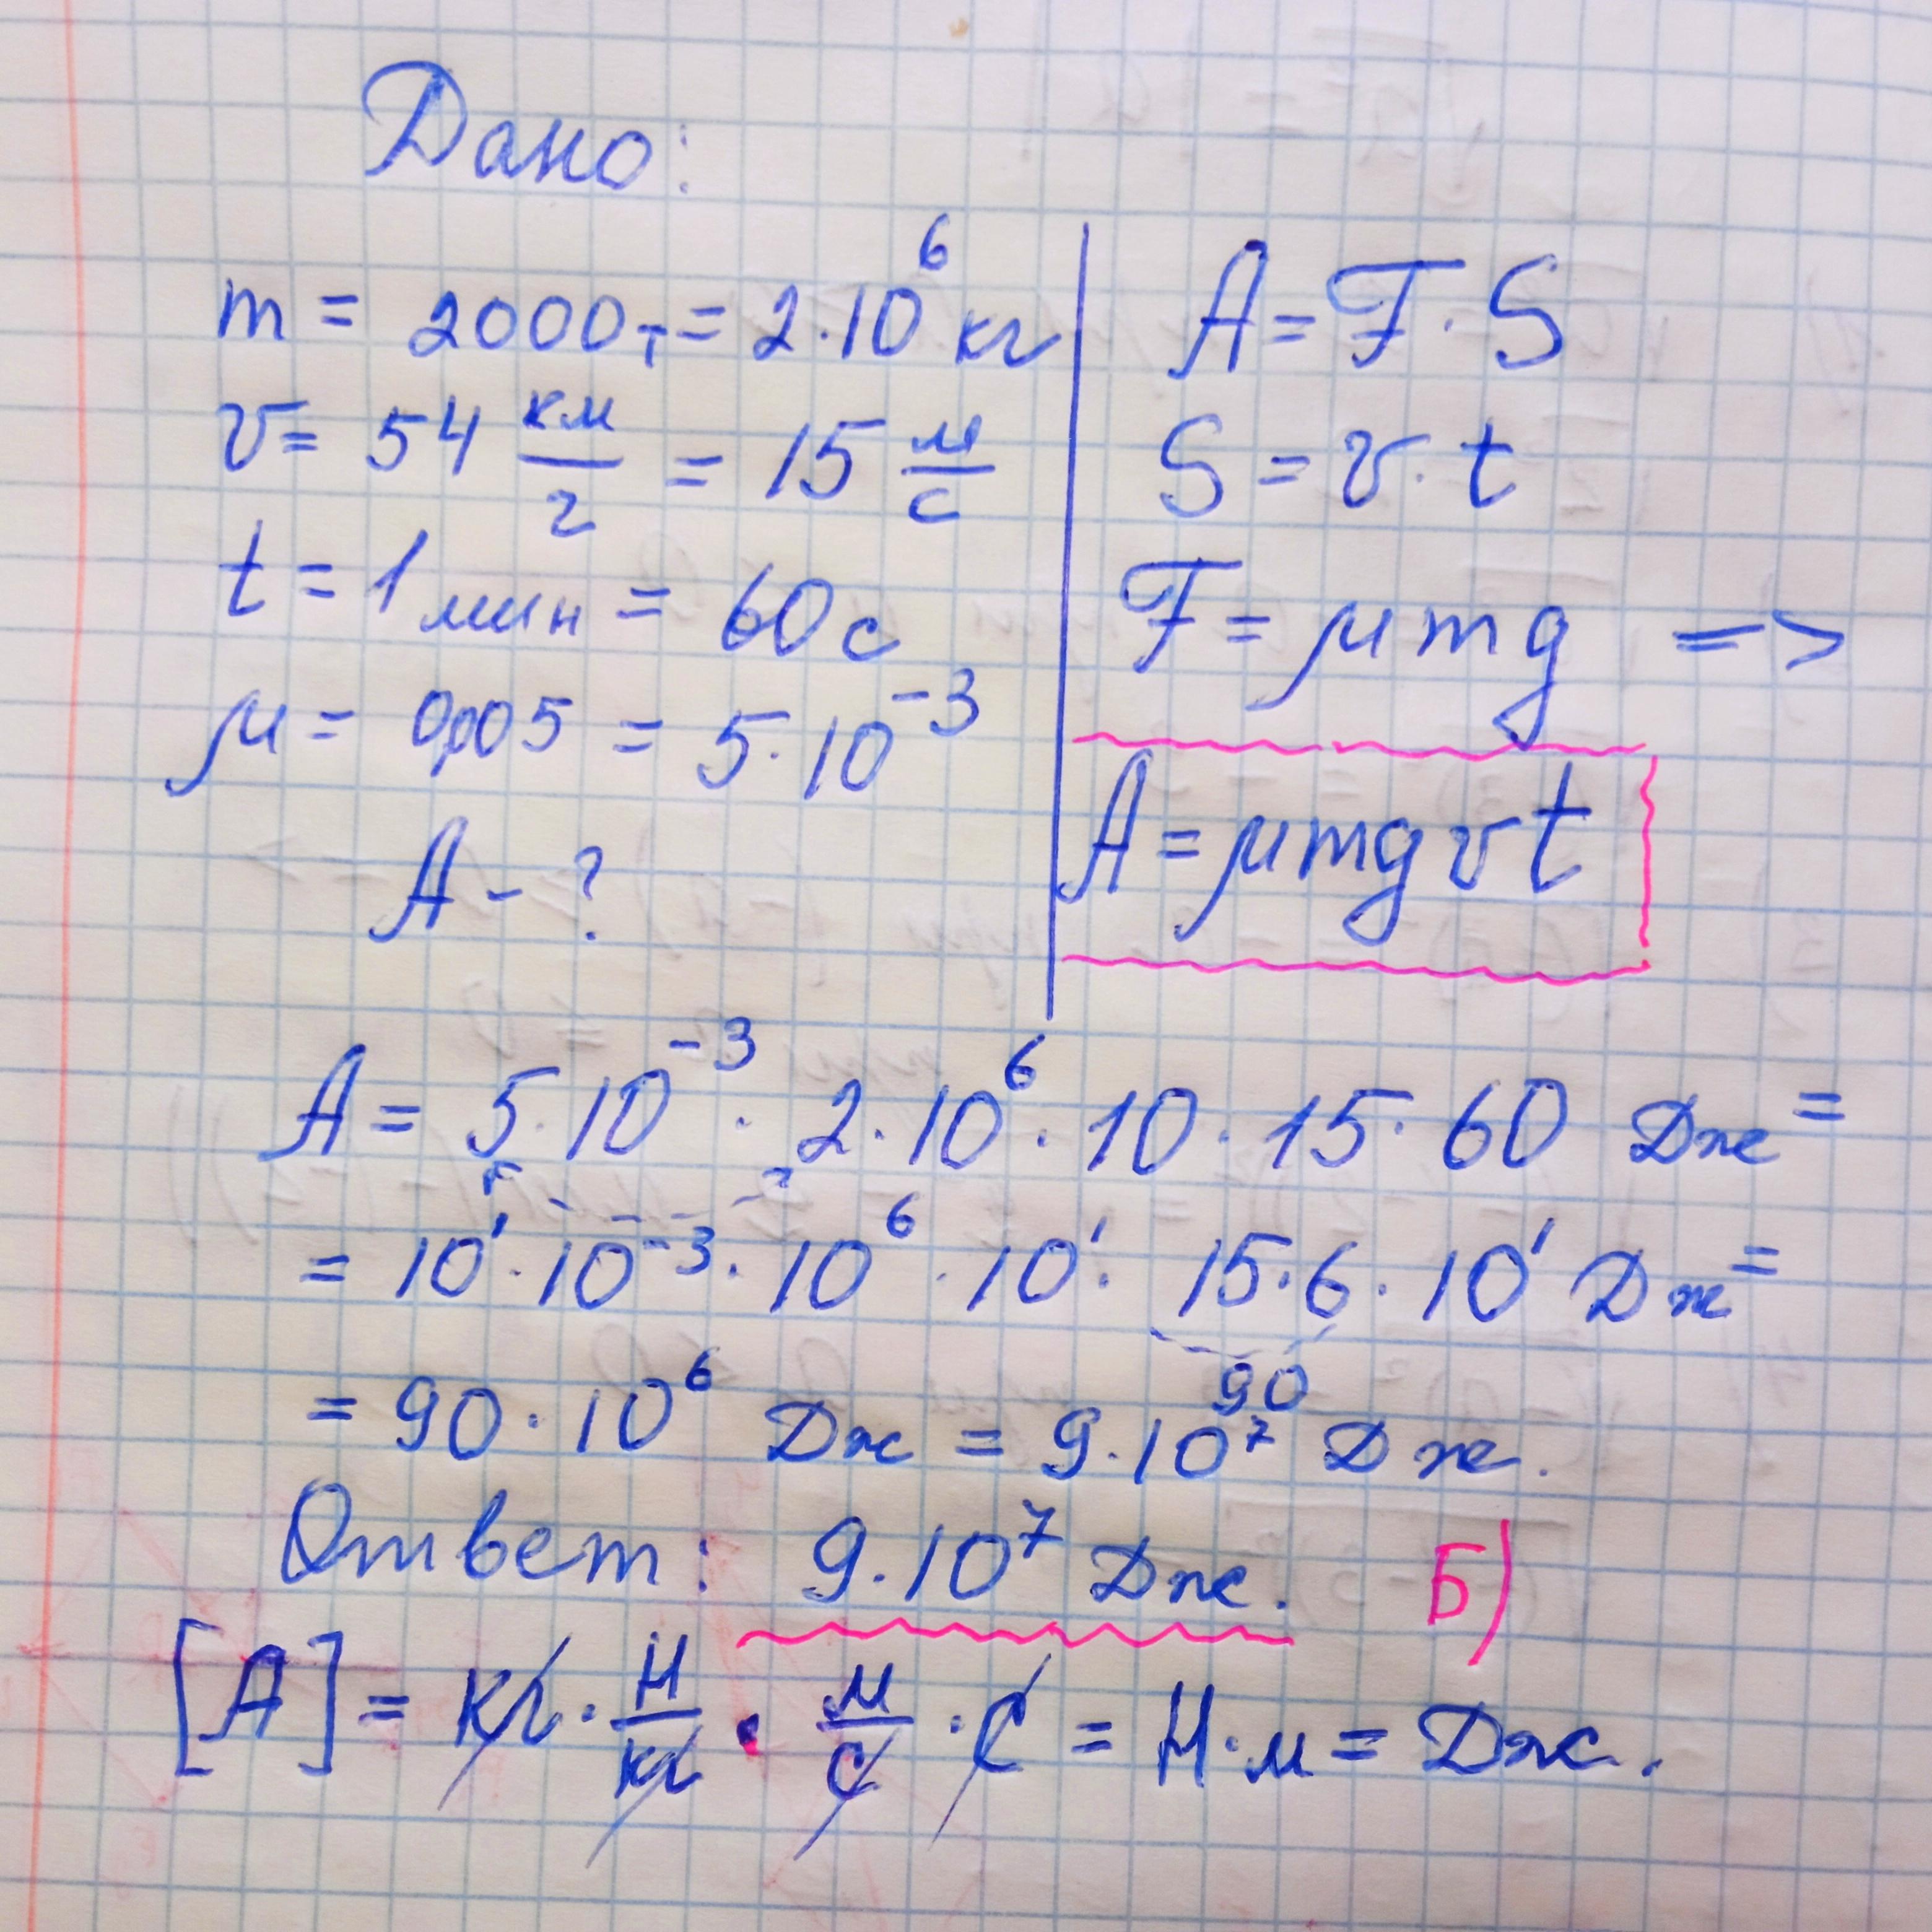 Дано:
m = 2000т = 2·10⁶ кг
v = 54 км/г = 15 м/с
t = 1 мин = 60 с
μ = 0,005 = 5·10⁻³
A – ?
A = F · S
S = v · t
F = μ m g =>
A = μ m g v t
A = 5·10⁻³ · 2·10⁶ · 10 · 15 · 60 Дж =
= 10¹ · 10⁻³ · 10⁶ · 10¹ · 15·6 · 10¹ Дж =
90
= 90 · 10⁶ Дж = 9·10⁷ Дж.
Ответ: 9·10⁷ Дж. Б)
[A] = кг · Н/кг · м/с · с = Н·м = Дж.